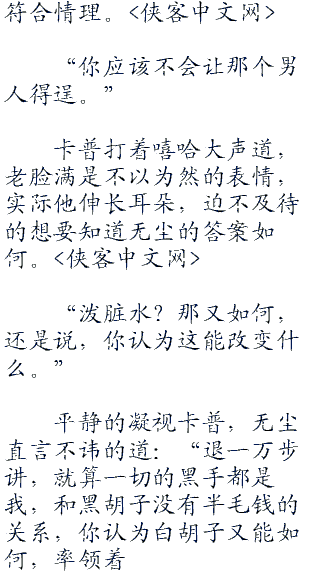 符合情理。<侠客中文网>
“你应该不会让那个男
人得逞。”
卡普打着嘻哈大声道，
老脸满是不以为然的表情，
实际他伸长耳朵，迫不及待
的想要知道无尘的答案如
何。<侠客中文网>
“泼脏水？那又如何，
还是说，你认为这能改变什
么。”
平静的凝视卡普，无尘
直言不讳的道：“退一万步
讲，就算一切的黑手都是
我，和黑胡子没有半毛钱的
关系，你认为白胡子又能如
何，率领着